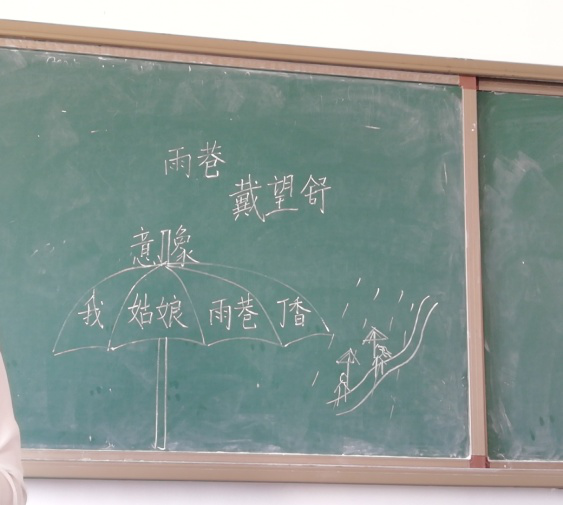 雨巷
戴望舒
意象
我 姑娘 雨巷 丁香